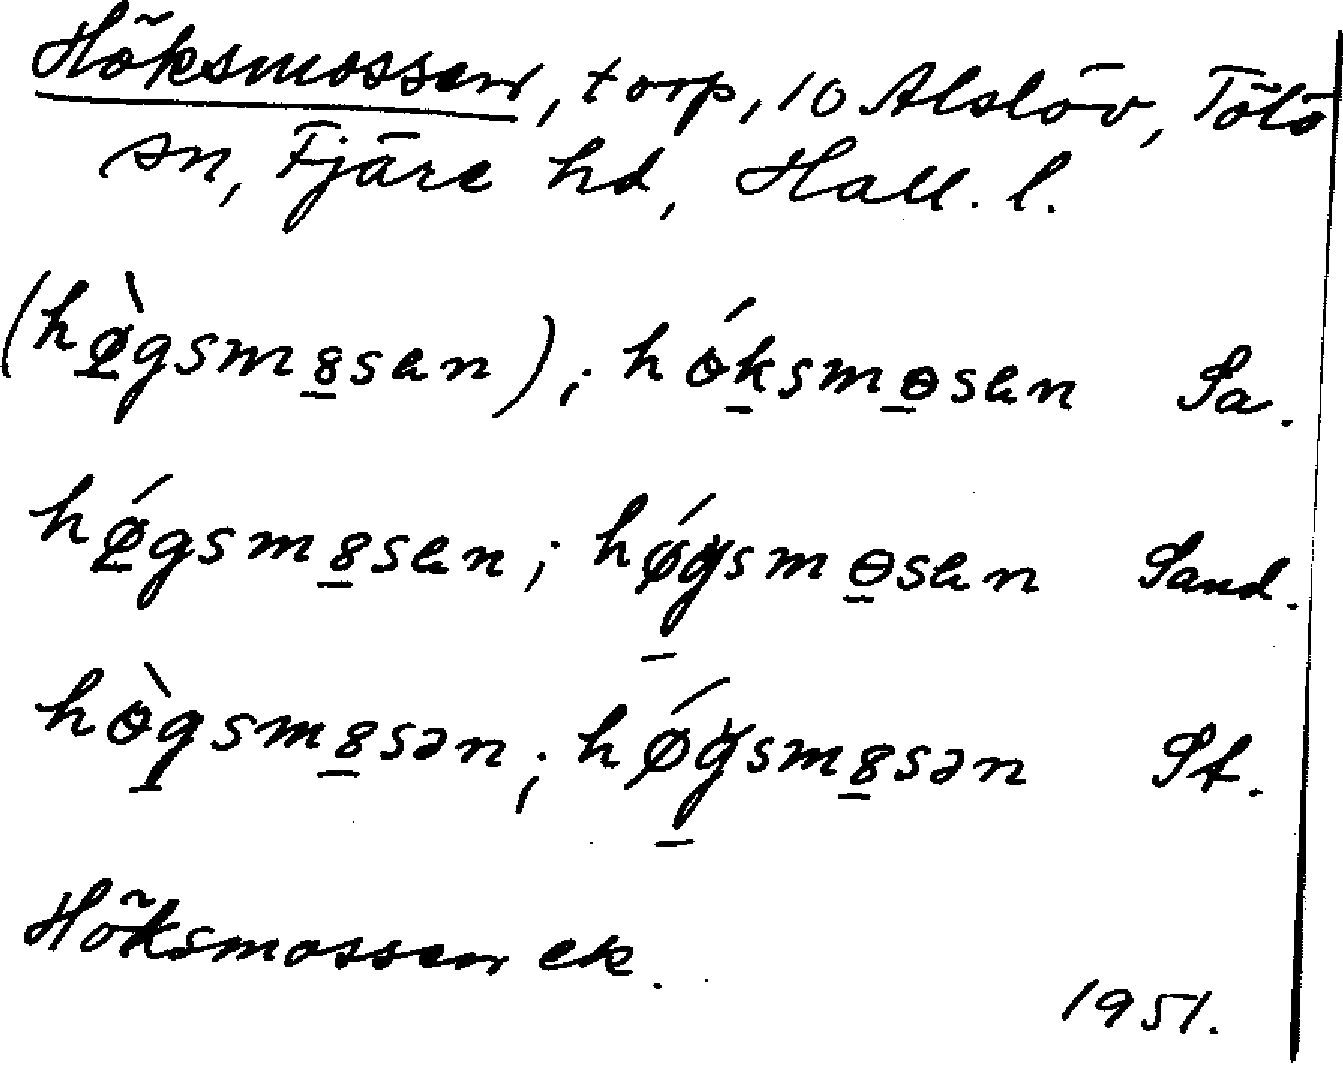 Höksmossen, torp, 10 Alslöv, Tölö
sn, Fjäre hd, Hall. l.
(hø̀gsm8sen); hóksmɵsen Sa.
hǿgsm8sen; hǿgsmɵsen Sand.
hògsm8sən; hǿgsm8sən St.
Höksmossen ek.
1951.